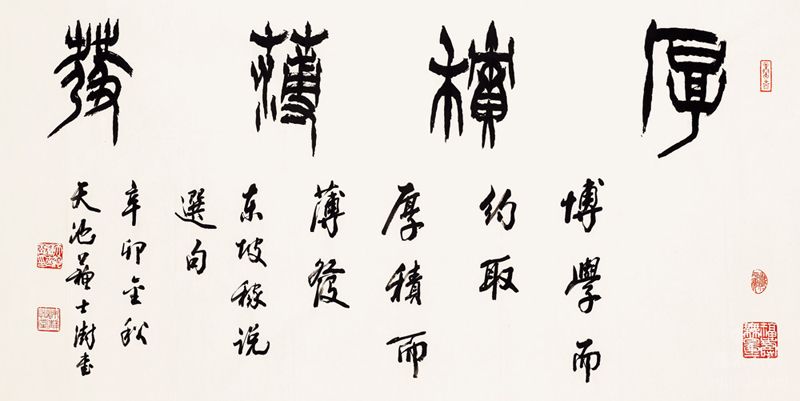 厚積薄發
博學而
约取
厚積而
薄發
东坡稼说
選句
辛卯金秋
天池蘇士澍書